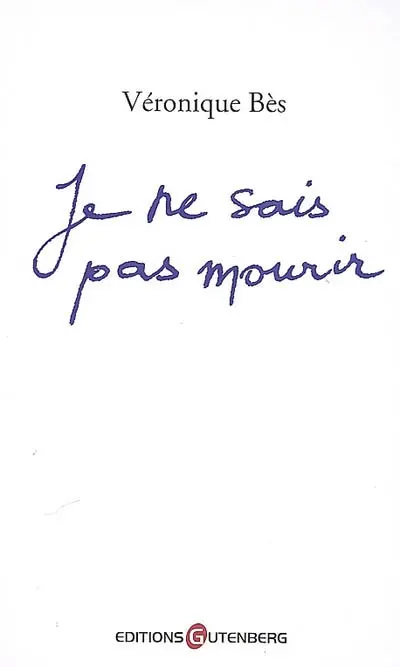 Véronique Bès
Je ne sais
pas mourir
EDITIONS GUTENBERG